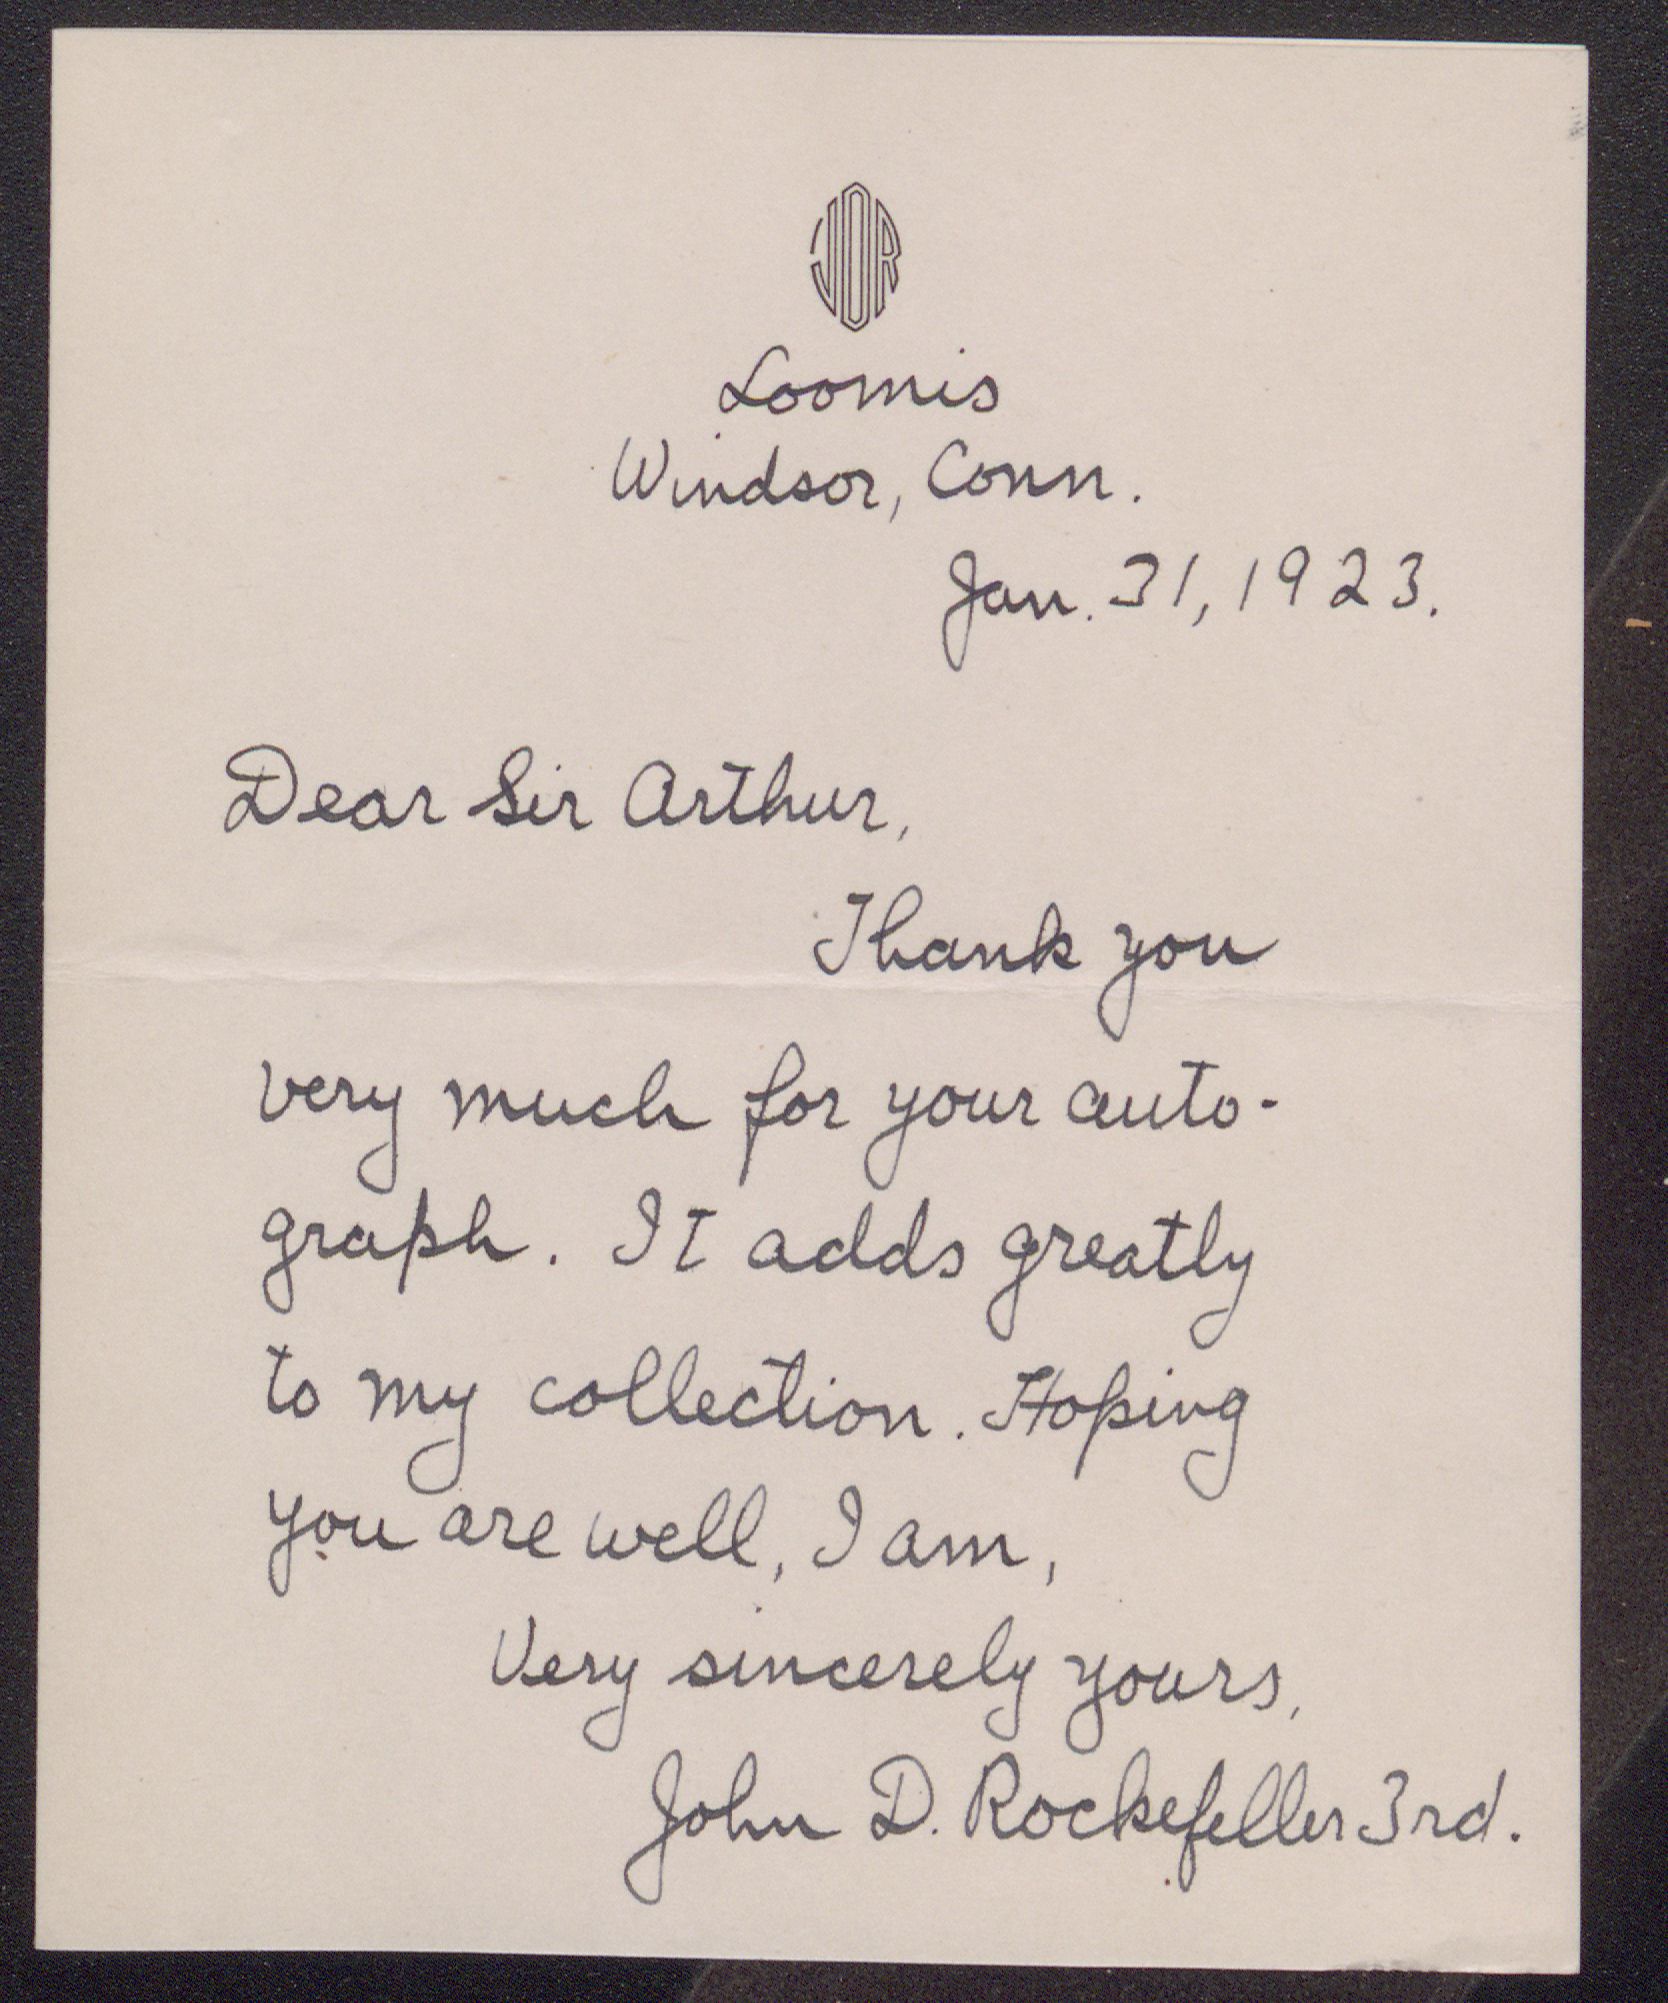 JDR
Loomis
Windsor, Conn.
Jan. 31, 1923.
Dear Sir Arthur,
Thank you
very much for your auto-
graph. It adds greatly
to my collection. Hoping
you are well, I am,
Very sincerely yours,
John D. Rockefeller 3rd.